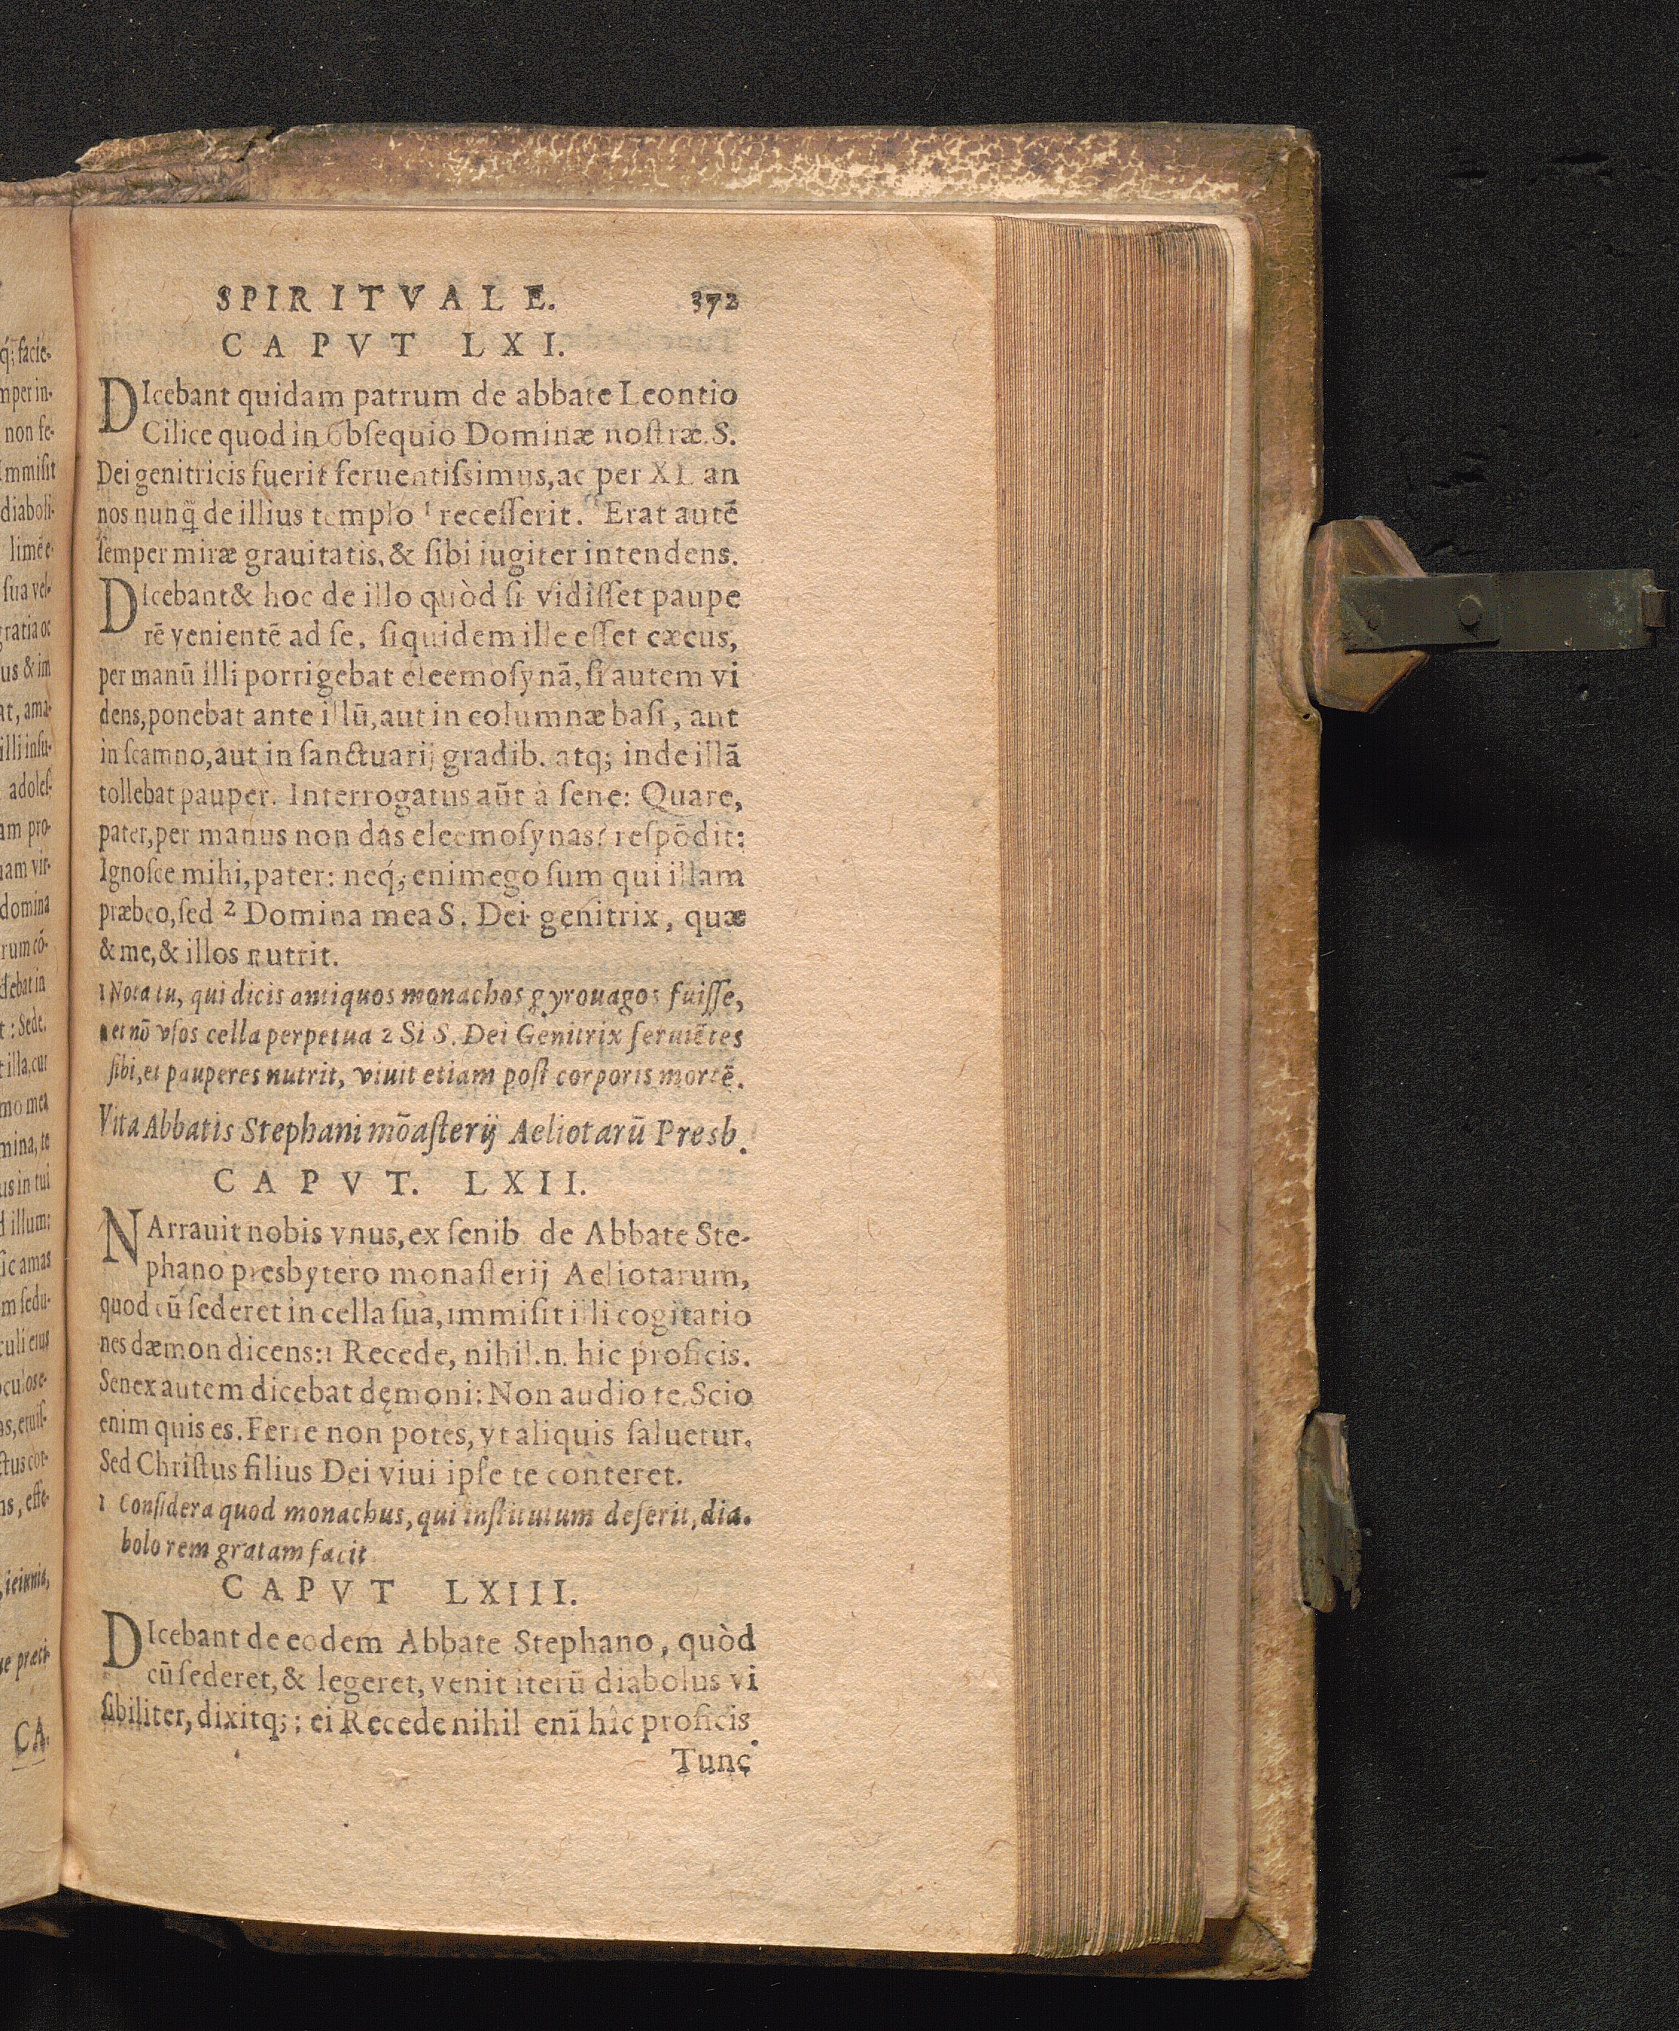 SPIRITVALE. 372
CAPVT LXI.
DIcebant quidam patrum de abbate Leontio
Cilice quod in obſequio Dominæ noſtræ. S.
Dei genitricis fuerit feruentiſsimus, ac per XL an
nos nunq̃ de illius templo 1 receſſerit. Erat autẽ
ſemper miræ grauitatis, & ſibi iugiter intendens.
DIcebant & hoc de illo quòd ſi vidiſſet paupe
rẽ venientẽ ad ſe, ſiquidem ille eſſet cæcus,
per manũ illi porrigebat eleemoſynã, ſi autem vi
dens, ponebat ante illũ, aut in columnæ baſi, aut
in ſcamno, aut in ſanctuarij gradib. atq; inde illã
tollebat pauper. Interrogatus aũt à ſene: Quare,
pater, per manus non das eleemoſynas? reſpõdit:
Ignoſce mihi, pater: neq́; enim ego ſum qui illam
præbeo, ſed 2 Domina mea S. Dei genitrix, quæ
& me, & illos nutrit.
1 Nota tu, qui dicis antiquos monachos gyrouagos fuiſſe,
et nõ vſos cella perpetua 2 Si S. Dei Genitrix ſeruiẽtes
ſibi, et pauperes nutrit, viuit etiam poſt corporis mortẽ.
Vita Abbatis Stephani mõaſterij Aeliotarũ Presb.
CAPVT. LXII.
NArrauit nobis vnus, ex ſenib de Abbate Ste-
phano presbytero monaſterij Aeliotarum,
quod cũ ſederet in cella ſua, immiſit illi cogitatio
nes dæmon dicens: 1 Recede, nihil .n. hic proficis.
Senex autem dicebat dęmoni: Non audio te. Scio
enim quis es. Ferre non potes, vt aliquis ſaluetur.
Sed Chriſtus filius Dei viui ipſe te conteret.
1 Conſidera quod monachus, qui inſtitutum deſerit, dia-
bolo rem gratam facit
CAPVT LXIII.
DIcebant de eodem Abbate Stephano, quòd
cũ ſederet, & legeret, venit iterũ diabolus vi
ſibiliter, dixitq; : ei Recede nihil enĩ hîc proficis
Tunc